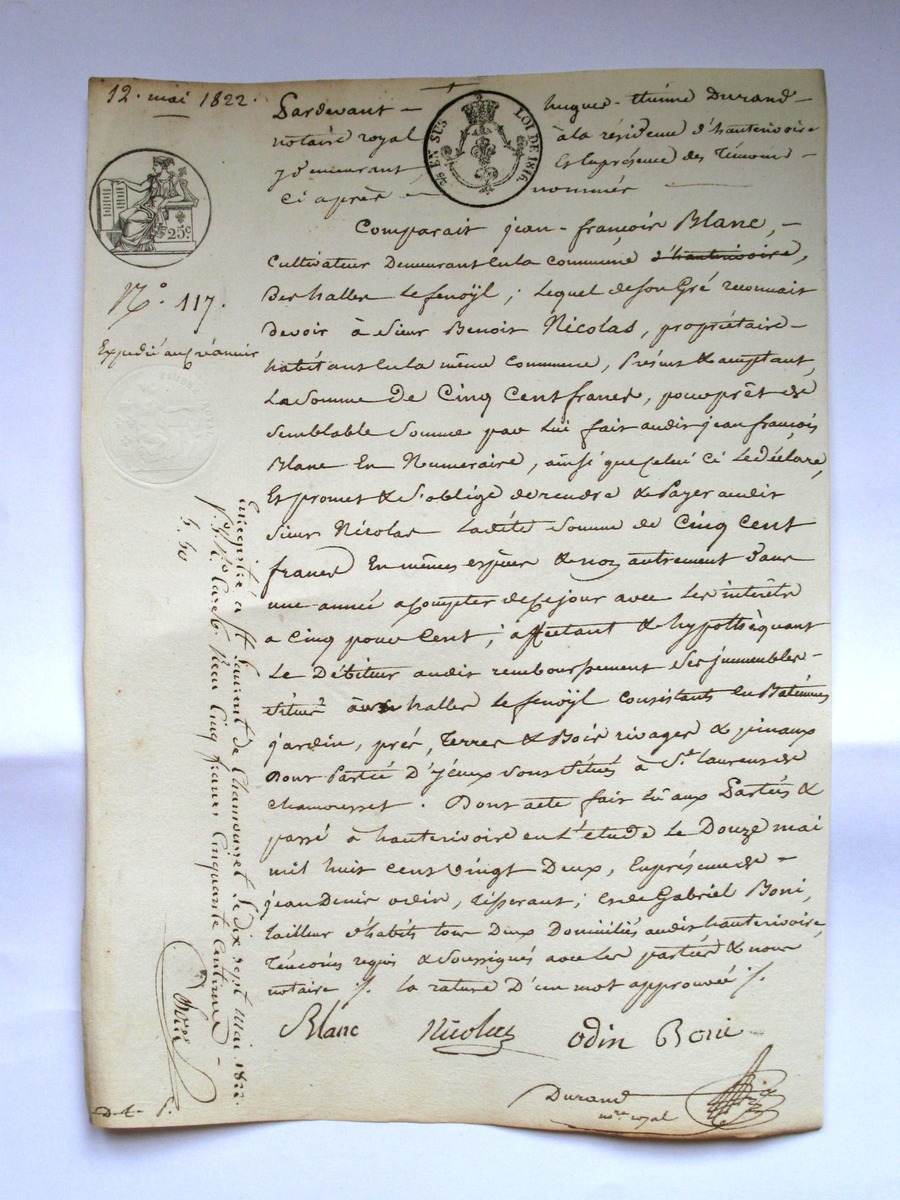 12. mai 1822.
Pardevant - hugues-étienne Durand -
notaire royal à la résidence d'hauterivoire
y demeurant Et en présence des Témoins -
ci après - nommés
EN SUS LOI DE 1816
25c
Comparait jean-françois Blanc, -
Cultivateur Demeurant En la commune d'hauterivoire,
Des halles Le fenoÿl; Lequel de son Gré reconnait
devoir à Sieur Benoit Nicolas, propriétaire -
habitant En la même commune, Présent & acceptant,
La Somme De Cinq Cent francs, pour prêt de
Semblable Somme par Lui fait audit jean françois
Blanc En Numeraire, ainsi que Celui ci Le déclare,
Et promet & S'oblige de rendre & Payer audit
Sieur Nicolas Ladite Somme de Cinq Cent
francs En mêmes espèces & non autrement Dans
une année a compter de Ce jour avec Les intérêts
a Cinq pour Cent; affectant & hypothèquant
Le Débiteur audit remboursement Ses immeubles -
Situés aux halles Le fenoÿl Consistants En Batiments
jardin, prés, Terres & Bois rivages & pinaux
Dont Partie D'iceux Sont Situés à St. Laurent de
Chamousset. Dont acte fait Lû aux Parties &
passé à hauterivoire en L'étude Le Douze mai
mil huit cent vingt Deux, En présence de -
jean Denis odin, tisserant; et de Gabriel Boni,
tailleur d'habits tous Deux Domiciliés audit hauterivoire,
Témoins requis & Soussignés avec Les parties & nous
notaire ./. La rature D'un mot approuvée ./.
Blanc Nicolas odin Boni
Durand
nore royal
No. 117.
Expedié au Créancier
Enregistré a St Laurent de Chamousset le dix sept Mai 1822.
Reçu Cinq francs Cinquante Centimes -
5.50